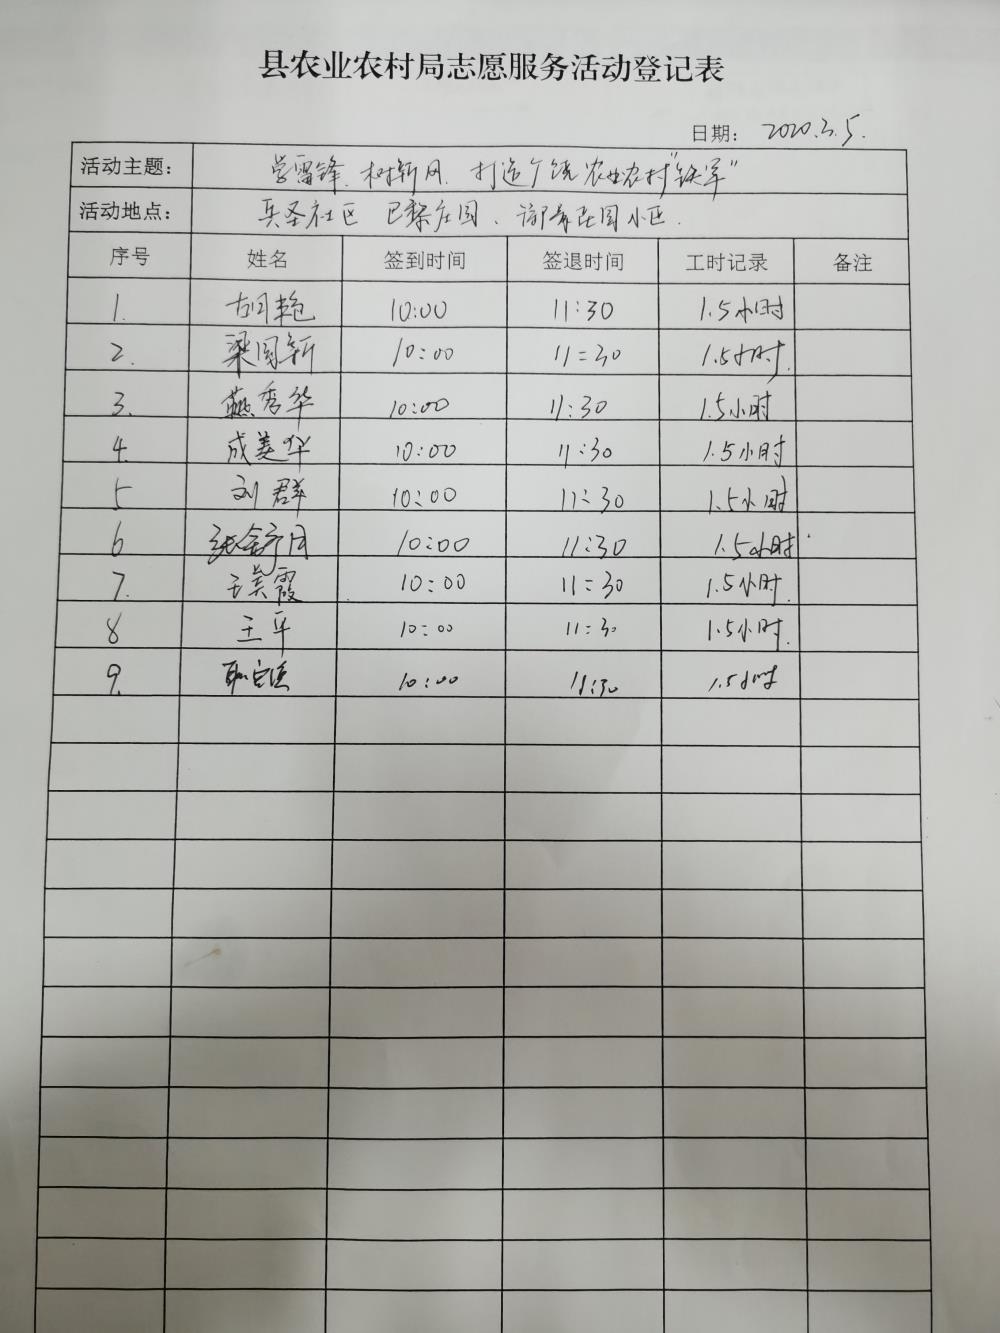 县农业农村局志愿服务活动登记表
日期： 2020.3.5.
活动主题： 学雷锋、树新风、打造广饶农业农村"铁军"
活动地点： 兵圣社区 巴黎庄园、 花园小区.
序号 姓名 签到时间 签退时间 工时记录 备注
1. 胡艳 10:00 11:30 1.5小时
2. 梁国新 10:00 11:30 1.5小时.
3. 燕秀华 10:00 11:30 1.5小时
4. 成美华 10:00 11:30 1.5小时
5 刘群 10:00 11:30 1.5小时
6 10:00 11:30 1.5小时
7. 王美霞 10:00 11:30 1.5小时.
8 王平 10:00 11:30 1.5小时.
9. 10:00 11:30 1.5小时